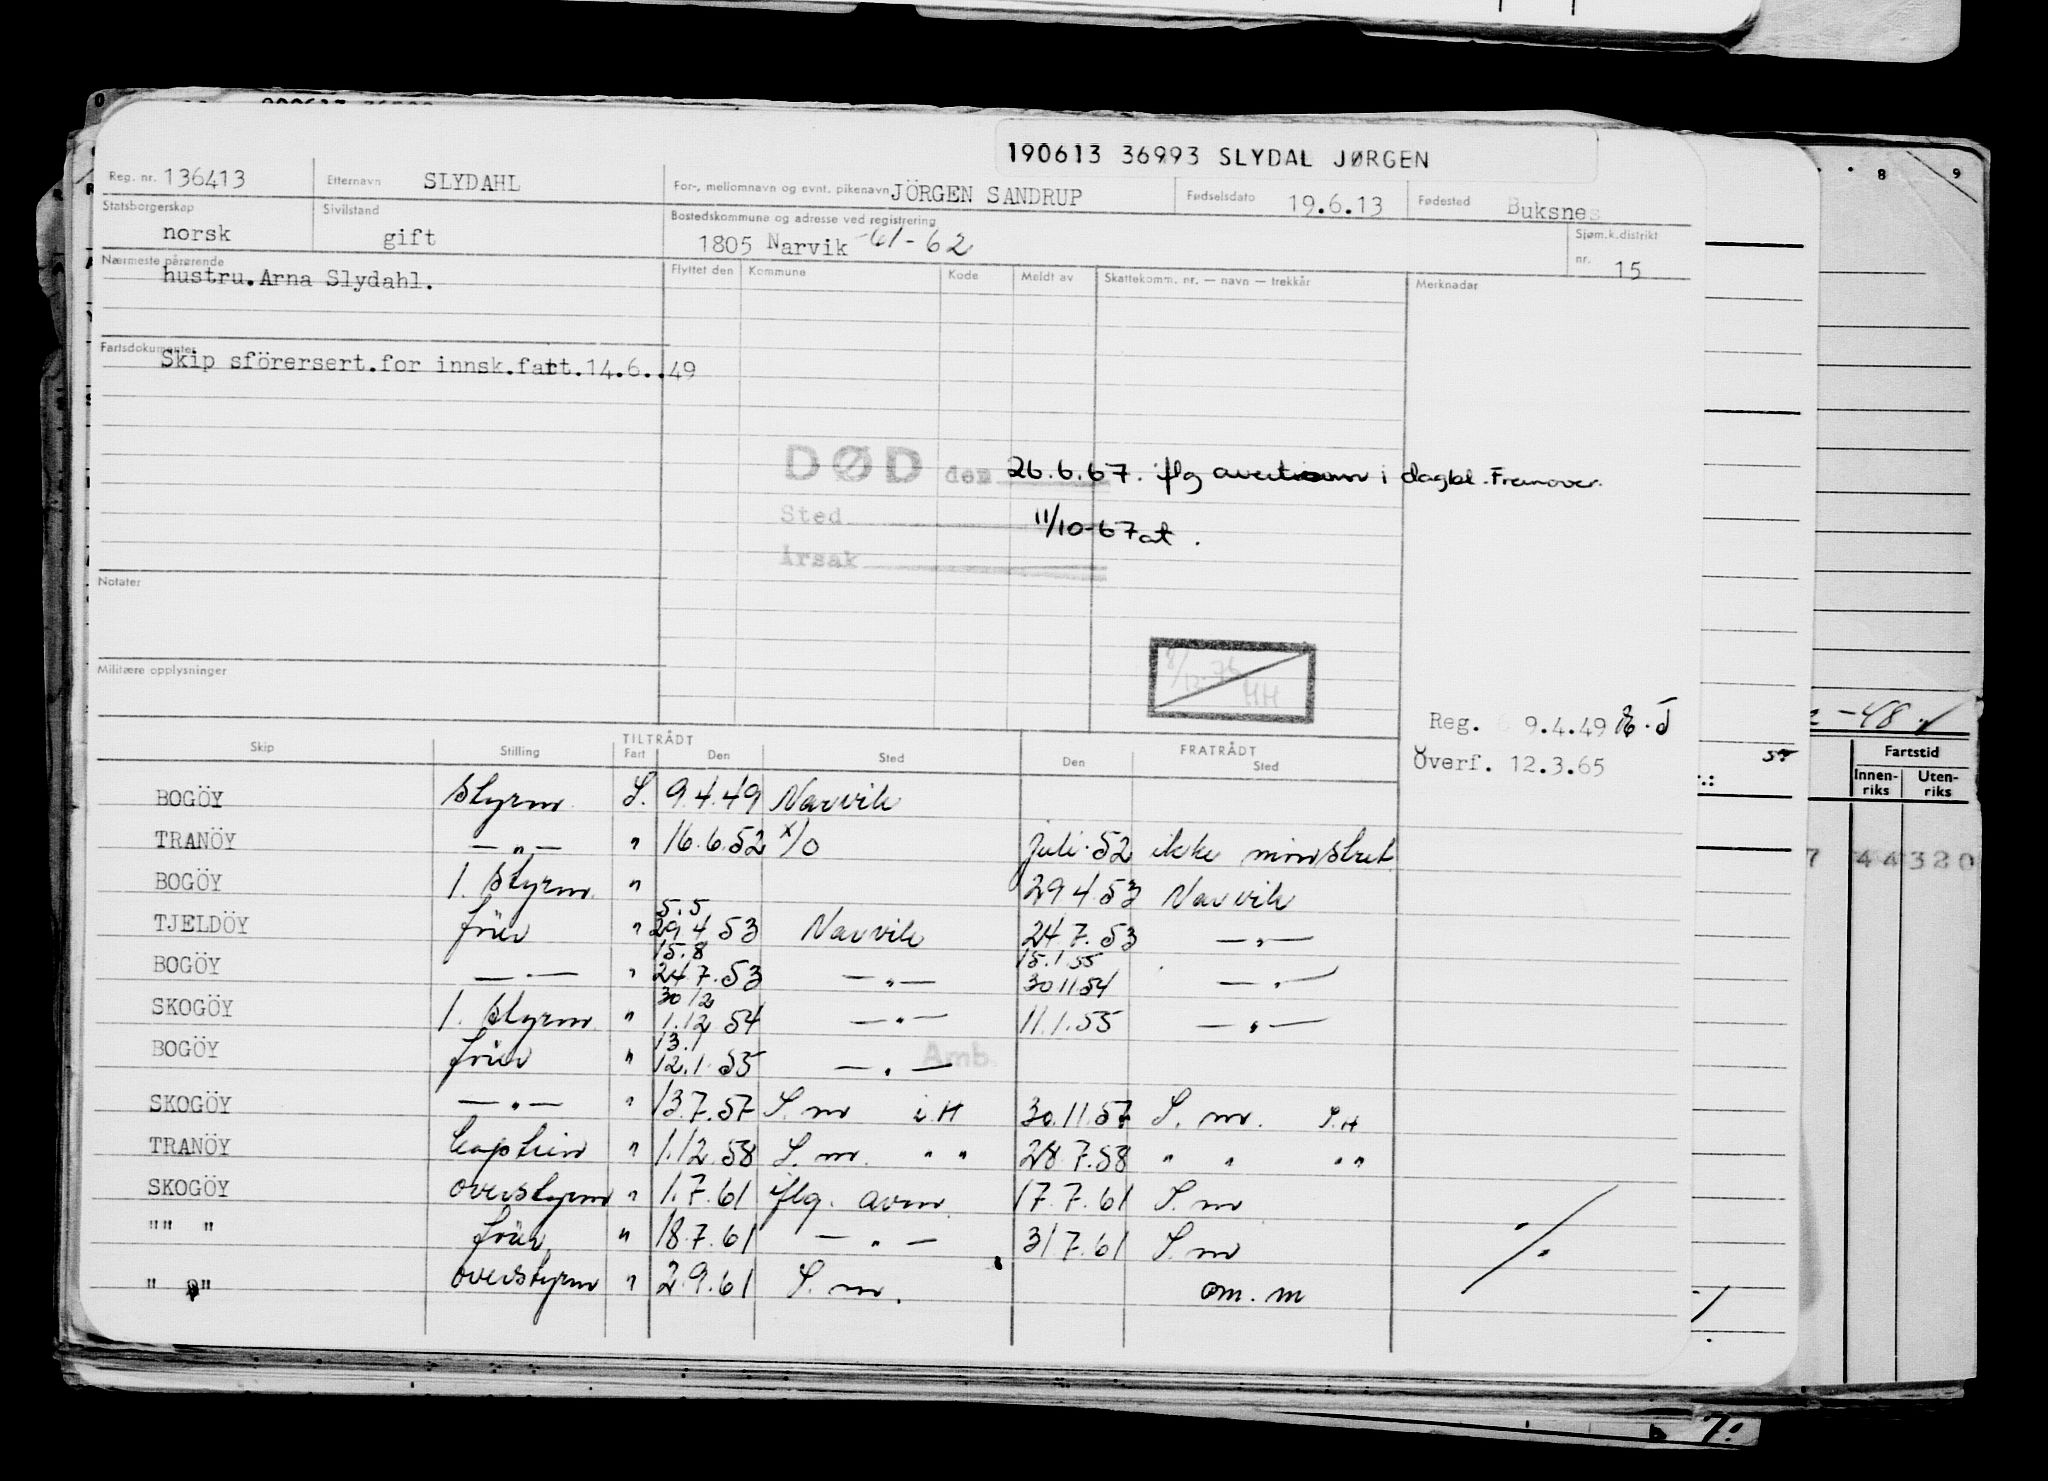 190613 36993 SLYDAL JØRGEN
Reg. nr. 136413 Etternavn SLYDAHL For-, mellomnavn og evnt. pikenavn JÖRGEN SANDRUP Fødselsdato 19.6.13 Fødested Buksnes
Statsborgerskap norsk Sivilstand gift Bostedskommune og adresse ved registrering 1805 Narvik -61-62 Sjøm.k.distrikt nr. 15
Nærmeste pårørende hustru.Arna Slydahl. Flyttet den Kommune Kode Meldt av Skattekomm. nr. — navn — trekkår Merknader
Fartsdokumenter Skip sförersert.for innsk.fart.14.6..49
DØD den 26.6.67. iflg i dagbl. Fremover.
Sted 11/10-67 at.
Årsak
Notater
Militære opplysninger
8/12-75 HH
Reg. 9.4.49
Overf. 12.3.65
-48
Skip Stilling TILTRÅDT Fart Den Sted FRATRÅDT Den Sted
Fartstid
Innen-riks Uten-riks
BOGÖY Styrm. L. 9.4.49 Narvik
TRANÖY — " — " 16.6.52 x/o juli.52 ikke mönstret
BOGÖY 1. styrm. " 29 4.53 Narvik
5.5
TJELDÖY förer " 29 4 53 Narvik 24 7. 53 — " —
15.8 15.1.55
BOGÖY — — " 24.7.53 — " — 30 11 54 — " —
30 12
SKOGÖY 1. styrm. " 1.12 54 — " — 11.1.55 — " —
13.1
BOGÖY förer " 12.1.55 — " — Amb.
SKOGÖY — " — " 13.7.57 S.m i.H 30.11.57 S. m. S.H
TRANÖY Captein " 1.12.58 S. m. " " 28 7.58 " " " "
SKOGÖY overstyrm " 1.7.61 iflg. avm. 17.7.61 S.m
"" " förer " 18.7.61 — " — 31 7.61 S.m
" " overstyrm " 2.9.61 S.m. om. m
7 44320
8 9
7.